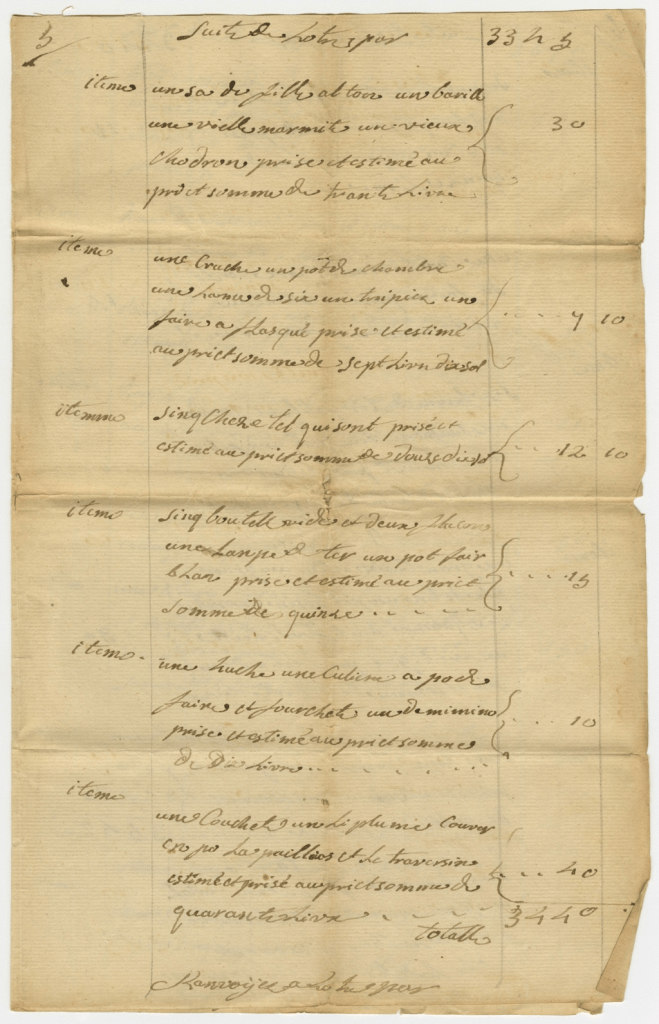 5 Suite de Lotre par 3325
iteme un sa de fille al ton un barill
une vielle marmite un vieux 30
chodron prise et estimé au
prix et somme de trante Livre
iteme une Cruche un pot de chambre
une Lanu de sie un tripiez un
faire a flasqué prise et estimé .... 7 10
au prix et somme de sept Livre dix sol
itemme sinq cheze tel qui sont prisé et
estimé au prix et somme de douze dix sol ... 12 10
iteme sinq boutelle vide et deux flacon
une Lanpe de ter un pot fair
blan prise et estimé au priet .... 15
somme de quinze ....
iteme une hache une Culiere a po de
faire et fourchete un demimino
prise et estimé au priet somme .... 10
de Dix Livre .....
iteme une Couchet un Li plume Couver
po La paillas et Le traversin
estimé et prisé au priet somme de ... 40
quarante Livre .... 3440
totalle
Ranvoyez a Lotre par